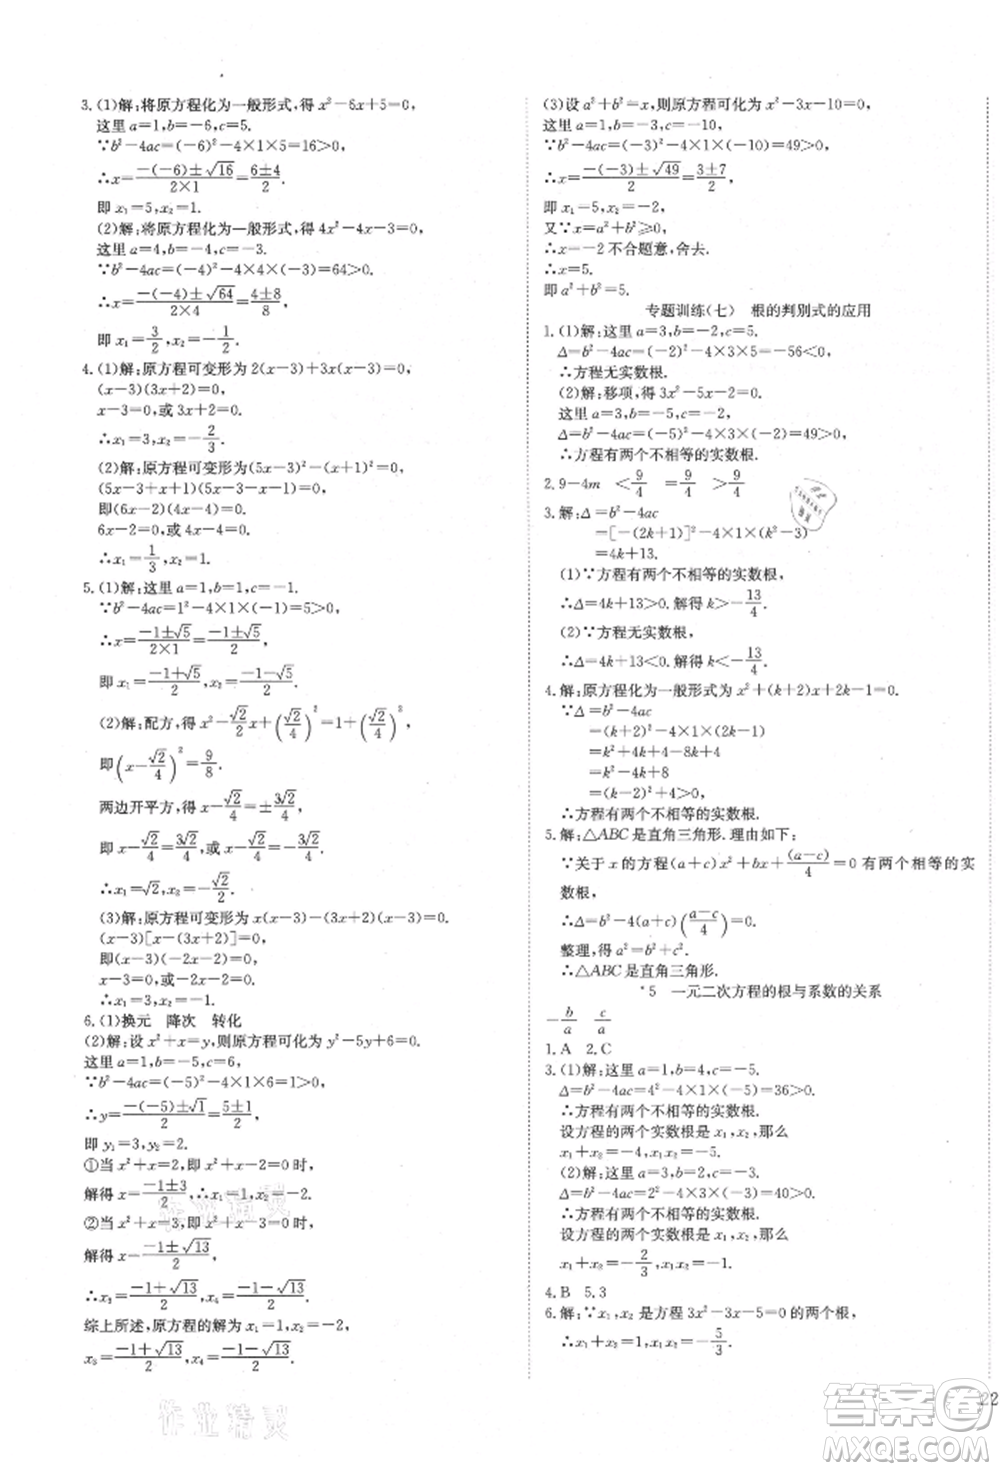 3. (1)解:将原方程化为一般形式,得 x²-6x+5=0,
这里 a=1,b=-6,c=5.
∵b²-4ac=(-6)²-4×1×5=16>0,
∴x=\frac{-(-6)±√16}{2×1}=\frac{6±4}{2}.
即 x₁=5,x₂=1.
(2)解:将原方程化为一般形式,得 4x²-4x-3=0,
这里 a=4,b=-4,c=-3.
∵b²-4ac=(-4)²-4×4×(-3)=64>0,
∴x=\frac{-(-4)±√64}{2×4}=\frac{4±8}{8}.
即 x₁=\frac{3}{2},x₂=-\frac{1}{2}.
4. (1)解:原方程可变形为 2(x-3)+3x(x-3)=0,
(x-3)(3x+2)=0.
x-3=0,或 3x+2=0.
∴x₁=3,x₂=-\frac{2}{3}.
(2)解:原方程可变形为(5x-3)²-(x+1)²=0,
(5x-3+x+1)(5x-3-x-1)=0,
即(6x-2)(4x-4)=0.
6x-2=0,或 4x-4=0.
∴x₁=\frac{1}{3},x₂=1.
5. (1)解:这里 a=1,b=1,c=-1.
∵b²-4ac=1²-4×1×(-1)=5>0,
∴x=\frac{-1±√5}{2×1}=\frac{-1±√5}{2}.
即 x₁=\frac{-1+√5}{2},x₂=\frac{-1-√5}{2}.
(2)解:配方,得 x²-\frac{√2}{2}x+(\frac{√2}{4})²=1+(\frac{√2}{4})²,
即(x-\frac{√2}{4})²=\frac{9}{8}.
两边开平方,得 x-\frac{√2}{4}=±\frac{3√2}{4},
即 x-\frac{√2}{4}=\frac{3√2}{4},或 x-\frac{√2}{4}=-\frac{3√2}{4}.
∴x₁=√2,x₂=-\frac{√2}{2}.
(3)解:原方程可变形为 x(x-3)-(3+x)(x-3)=0.
(x-3)[x-(3+x)]=0,
即(x-3)(-3)=0.
6. (1)换元 降次 转化
(2)解:设 x²+x=y,则原方程可化为 y²-5y+6=0.
这里 a=1,b=-5,c=6.
∵b²-4ac=(-5)²-4×1×6=1>0,
∴y=\frac{-(-5)±√1}{2}=\frac{5±1}{2},
即 y₁=3,y₂=2.
①当 x²+x=2,即 x²+x-2=0 时,
解得 x=\frac{-1±3}{2},∴x₁=1,x₂=-2.
②当 x²+x=3,即 x²+x-3=0 时,
解得 x=\frac{-1±√13}{2}.
∴x₃=\frac{-1+√13}{2},x₄=\frac{-1-√13}{2}.
综上所述,原方程的解为 x₁=1,x₂=-2,
x₃=\frac{-1+√13}{2},x₄=\frac{-1-√13}{2}.
(3)设 a²+b²=x,则原方程可化为 x²-3x-10=0.
这里 a=1,b=-3,c=-10,
∵b²-4ac=(-3)²-4×1×(-10)=49>0,
∴x=\frac{-(-3)±√49}{2}=\frac{3±7}{2},
即 x₁=5,x₂=-2.
又∵x=a²+b²≥0,
∴x=-2 不合题意,舍去.
∴x=5.
即 a²+b²=5.
专题训练(七) 根的判别式的应用
1. (1)解:这里 a=3,b=-2,c=5.
Δ=b²-4ac=(-2)²-4×3×5=-56<0,
∴方程无实数根.
(2)解:移项,得 3x²-5x-2=0.
这里 a=3,b=-5,c=-2,
Δ=b²-4ac=(-5)²-4×3×(-2)=49>0,
∴方程有两个不相等的实数根.
2. 9-4m <\frac{9}{4} =\frac{9}{4} >\frac{9}{4}
3. 解:Δ=b²-4ac
=[-(2k+1)]²-4×1×(k²-3)
=4k+13.
(1)∵方程有两个不相等的实数根,
∴Δ=4k+13>0. 解得 k>-\frac{13}{4}.
(2)∵方程无实数根,
∴Δ=4k+13<0. 解得 k<-\frac{13}{4}.
4. 解:原方程化为一般形式为 x²+(k+2)x+2k-1=0.
∵Δ=b²-4ac
=(k+2)²-4×1×(2k-1)
=k²+4k+4-8k+4
=k²-4k+8
=(k-2)²+4>0,
∴方程有两个不相等的实数根.
5. 解:△ABC是直角三角形. 理由如下:
∵关于 x 的方程(a+c)x²+bx+\frac{(a-c)}{4}=0 有两个相等的实
数根,
∴Δ=b²-4(a+c)(\frac{a-c}{4})=0.
整理,得 a²=b²+c².
∴△ABC是直角三角形.
*5 一元二次方程的根与系数的关系
-\frac{b}{a} \frac{c}{a}
1. A 2. C
3. (1)解:这里 a=1,b=4,c=-5.
Δ=b²-4ac=4²-4×1×(-5)=36>0,
∴方程有两个不相等的实数根.
设方程的两个实数根是 x₁,x₂,那么
x₁+x₂=-4,x₁x₂=-5.
(2)解:这里 a=3,b=2,c=-3.
Δ=b²-4ac=2²-4×3×(-3)=40>0.
∴方程有两个不相等的实数根.
设方程的两个实数根是 x₁,x₂,那么
x₁+x₂=-\frac{2}{3},x₁x₂=-1.
4. B 5. 3
6. 解:∵x₁,x₂ 是方程 3x²-3x-5=0 的两个根,
∴x₁+x₂=1,x₁x₂=-\frac{5}{3}.
22
作业精灵
作业精灵
答案圈
MXQE.COM